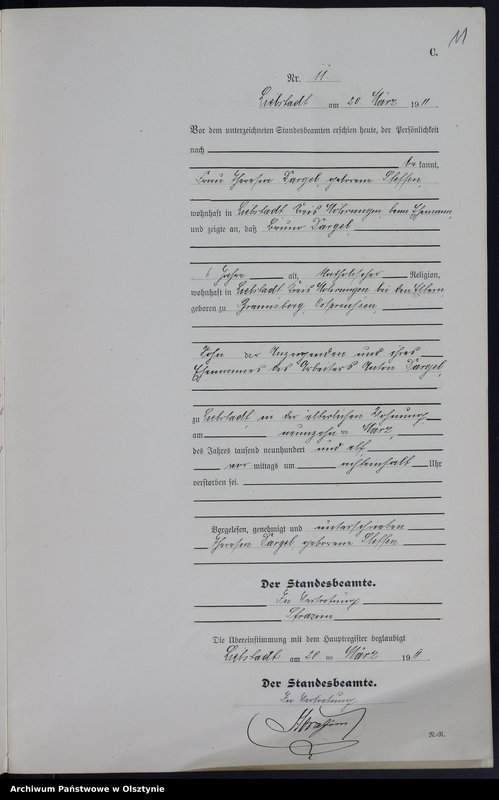 11
C.
Nr. 11.
Liebstadt am 20. März 1911.
Vor dem unterzeichneten Standesbeamten erschien heute, der Persönlichkeit
nach
be kannt,
Frau Therese Dargel, geborene Steffen,
wohnhaft in Liebstadt, Kreis Mohrungen, beim Ehemann,
und zeigte an, daß Bruno Dargel,
6 Jahre alt, katholischer Religion,
wohnhaft in Liebstadt Kreis Mohrungen bei den Eltern,
geboren zu Braunsberg, Ostpreußen,
Sohn der Anzeigenden und ihres
Ehemannes des Arbeiters Anton Dargel
zu Liebstadt in der elterlichen Wohnung
am neunzehnten März,
des Jahres tausend neunhundert und elf,
vor mittags um achteinhalb Uhr
verstorben sei.
Vorgelesen, genehmigt und unterschrieben
Therese Dargel geborene Steffen
Der Standesbeamte.
In Vertretung
Die Übereinstimmung mit dem Hauptregister beglaubigt
Liebstadt am 20 ten März 1911.
Der Standesbeamte.
In Vertretung
N.-R.
Archiwum Państwowe w Olsztynie